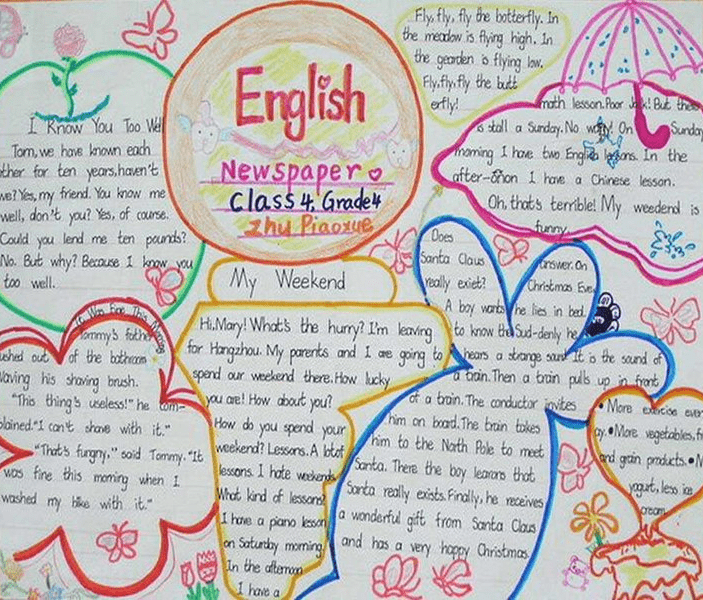 English
Newspaper
Class 4. Grade 4
Zhu Piaoxue
I Know You Too Well
Tom, we have known each
other for ten years, haven't
we? Yes, my friend. You know me
well, don't you? Yes, of course.
Could you lend me ten pounds?
No. But why? Because I know you
too well.
It Was Fine This Morning
Tommy's father
ushed out of the bathroom
waving his shaving brush.
"This thing's useless!" he com-
plained. "I can't shave with it."
"That's fungny," said Tommy. "It
was fine this morning when I
washed my bike with it."
My Weekend
Hi, Mary! What's the hurry? I'm leaving
for Hangzhou. My parents and I are going to
spend our weekend there. How lucky
you are! How about you?
How do you spend your
weekend? Lessons. A lot of
lessons. I hate weekends
What kind of lessons?
I have a piano lesson
on Saturday morning
In the afternoon
I have a
math lesson. Poor Jack! But there
is stall a Sunday. No worry! On Sunday
morning I have two English lessons. In the
after-onon I have a Chinese lesson.
Oh, that's terrible! My weedend is
funny.
Fly, fly, fly the botterfly. In
the meadow is flying high. In
the gearden is flying low.
Fly, fly, fly the butt
erfly!
Does
Santa Claus
really exiet?
A boy wants
to know the
answer. On
Christmas Eve,
he lies in bed.
Sud-denly he
hears a strange sound. It is the sound of
a train. Then a train pulls up in front
of a train. The conductor invites
him on board. The train takes
him to the North Pole to meet
Santa. There the boy learons that
Santa really exists. Finally, he receives
a wonderful gift from Santa Claus
and has a very happy Christmas.
• More exercise ever
ay. • More vegetables, fr
and grain products. • M
yogurt, less ice
cream